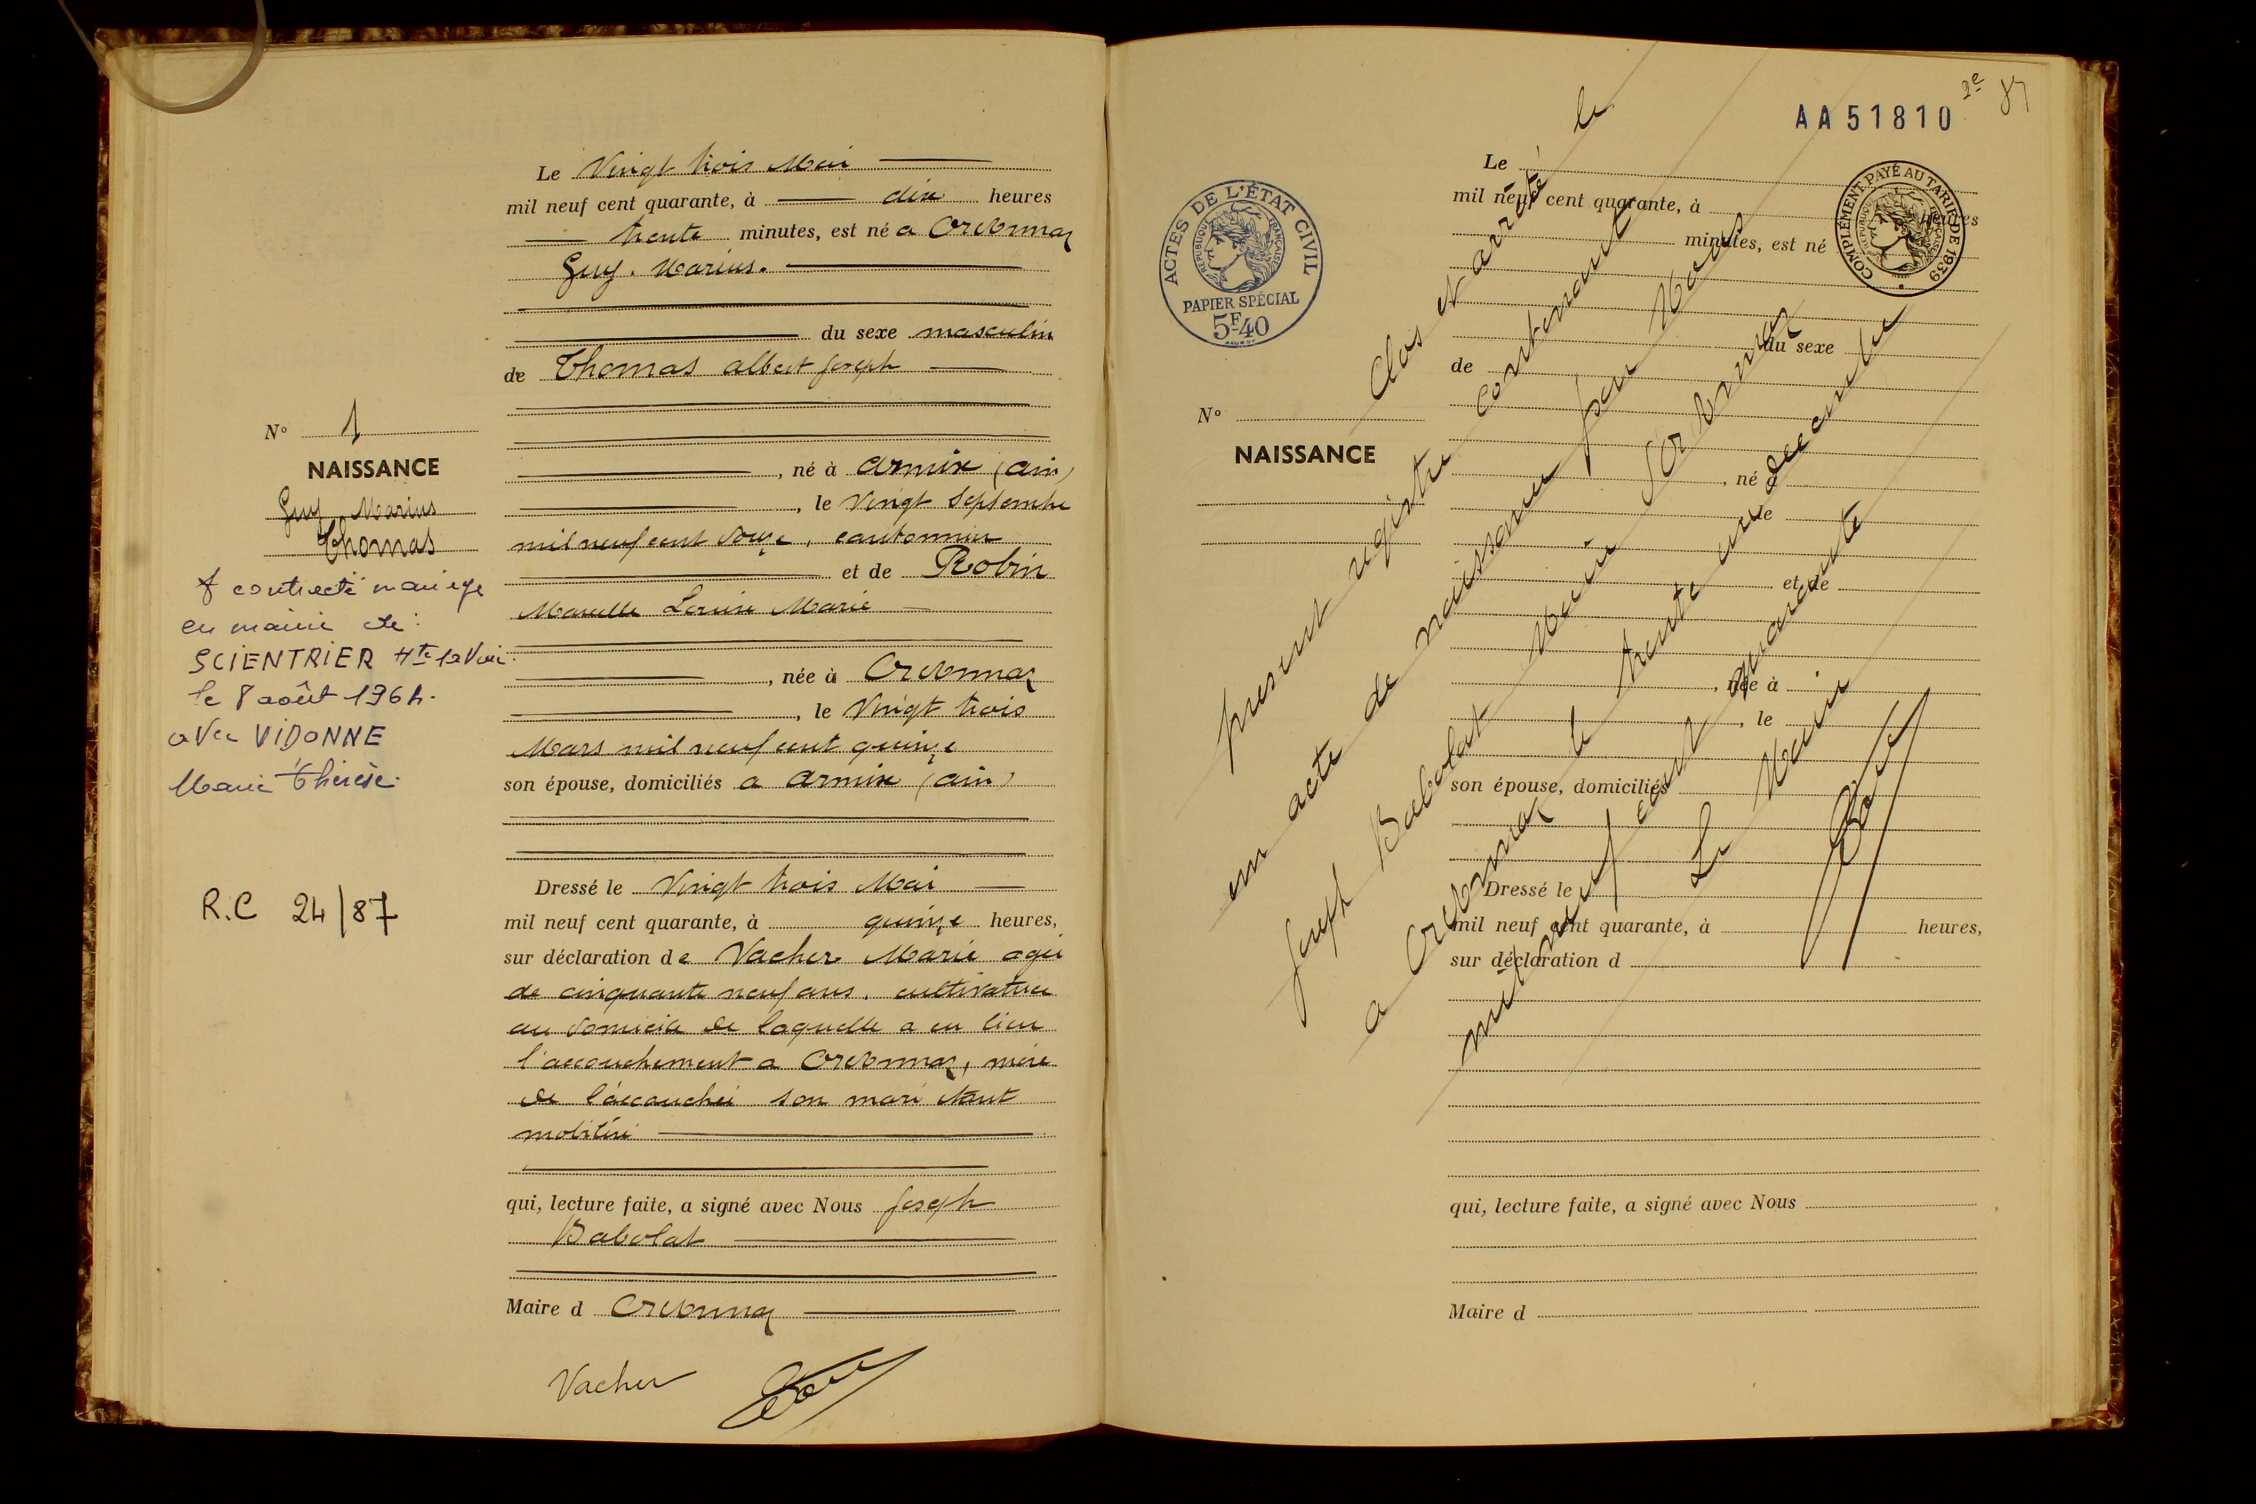 Le Vingt trois Mai
mil neuf cent quarante, à dix heures
trente minutes, est né a Ordonnaz
Guy. Marius.
du sexe masculin
de Thomas Albert Joseph
N° 1
NAISSANCE
Guy Marius
Thomas
, né à Armix (Ain)
, le Vingt Septembre
mil neuf cent douze, cantonnier
et de Robin
Marcelle Louise Marie
, née à Ordonnaz
, le Vingt trois
Mars mil neuf cent quinze
son épouse, domiciliés a Armix (Ain)
A contracté mariage
en mairie de
SCIENTRIER Hte Savoie
le 8 août 1964.
avec VIDONNE
Marie Thérèse.
R.C 24/87
Dressé le Vingt trois Mai
mil neuf cent quarante, à quinze heures,
sur déclaration de Vacher Marie agée
de cinquante neuf ans, cultivatrice
au domicile de laquelle a eu lieu
l'accouchement a Ordonnaz, mère
de l'accouchée son mari étant
mobilisé
qui, lecture faite, a signé avec Nous Joseph
Babolat
Maire d Ordonnaz
Vacher
AA51810
2e
87
ACTES DE L'ÉTAT CIVIL
RÉPUBLIQUE FRANÇAISE
PAPIER SPÉCIAL
5F40
COMPLÉMENT PAYÉ AU TARIF DE 1939
RÉPUBLIQUE FRANÇAISE
Le
mil neuf cent quarante, à heures
minutes, est né
du sexe
de
N°
NAISSANCE
, né à
, le
et de
, née à
, le
son épouse, domiciliés
Dressé le
mil neuf cent quarante, à heures,
sur déclaration d
qui, lecture faite, a signé avec Nous
Maire d
Clos et arrêté le
présent registre contenant
un acte de naissance par Nous
Joseph Babolat Maire d'Ordonnaz
a Ordonnaz le trente un decembre
mil neuf cent quarante
Le Maire